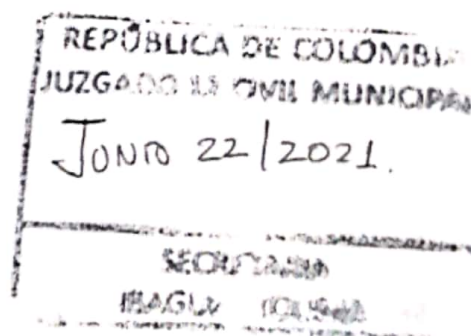 REPÚBLICA DE COLOMBIA
JUZGADO CIVIL MUNICIPAL
JUNIO 22/2021.
SECRETARIA
IBAGUÉ